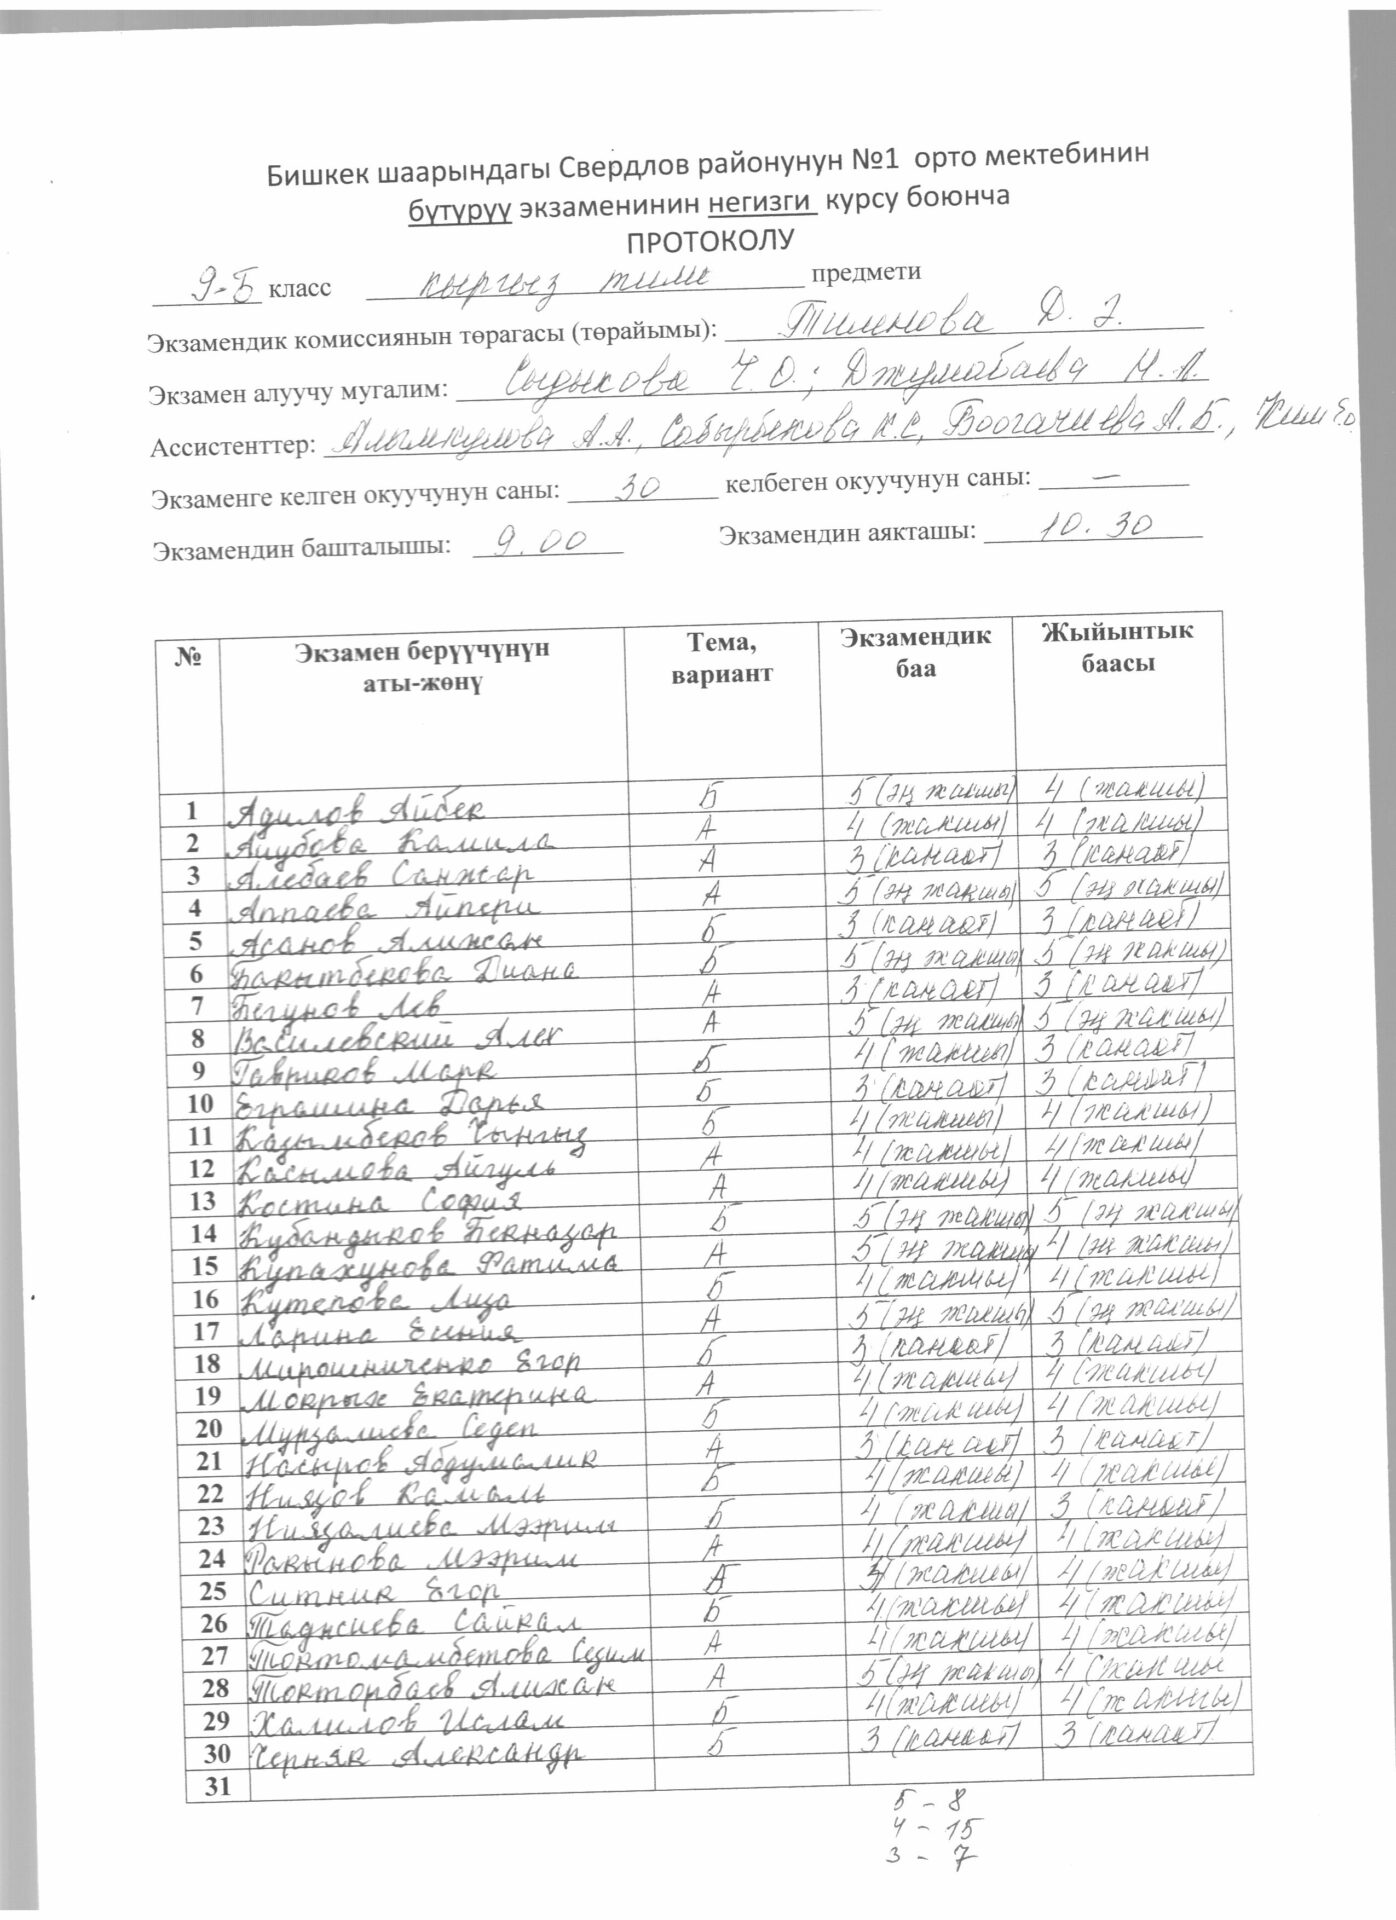 Бишкек шаарындагы Свердлов районунун №1 орто мектебинин
бүтүрүү экзаменинин негизги курсу боюнча
ПРОТОКОЛУ
9-Б класс кыргыз тили предмети
Экзамендик комиссиянын төрагасы (төрайымы): Тиленова Д. Э.
Экзамен алуучу мугалим: Сыдыкова Ч. О.; Джумабаева Н. А.
Ассистенттер: Алымкулова А.А., Сабырбекова К.С, Боогачиева А.Б., Ким Е.О
Экзаменге келген окуучунун саны: 30 келбеген окуучунун саны: —
Экзамендин башталышы: 9.00 Экзамендин аякташы: 10.30
№ Экзамен берүүчүнүн аты-жөнү Тема, вариант Экзамендик баа Жыйынтык баасы
1 Адилов Айбек Б 5 (эң жакшы) 4 (жакшы)
2 Аиубова Камила А 4 (жакшы) 4 (жакшы)
3 Алебаев Санжар А 3 (канаат) 3 (канаат)
4 Аппаева Айпери А 5 (эң жакшы) 5 (эң жакшы)
5 Асанов Алижан Б 3 (канаат) 3 (канаат)
6 Бакытбекова Диана Б 5 (эң жакшы) 5 (эң жакшы)
7 Бегунов Лев А 3 (канаат) 3 (канаат)
8 Василевский Алек А 5 (эң жакшы) 5 (эң жакшы)
9 Гавриков Марк Б 4 (жакшы) 3 (канаат)
10 Еграшина Дарья Б 3 (канаат) 3 (канаат)
11 Казымбеков Чынгыз Б 4 (жакшы) 4 (жакшы)
12 Касымова Айгуль А 4 (жакшы) 4 (жакшы)
13 Костина София А 4 (жакшы) 4 (жакшы)
14 Кубандыков Бекназар Б 5 (эң жакшы) 5 (эң жакшы)
15 Купахунова Фатима А 5 (эң жакшы) 4 (эң жакшы)
16 Кутепова Лиза Б 4 (жакшы) 4 (жакшы)
17 Ларина Есения А 5 (эң жакшы) 5 (эң жакшы)
18 Мирошниченко Егор Б 3 (канаат) 3 (канаат)
19 Мокрых Екатерина А 4 (жакшы) 4 (жакшы)
20 Мурзалиева Седеп Б 4 (жакшы) 4 (жакшы)
21 Насыров Абдумалик А 3 (канаат) 3 (канаат)
22 Ниязов Камаль Б 4 (жакшы) 4 (жакшы)
23 Ниязалиева Мээрим Б 4 (жакшы) 3 (канаат)
24 Ракынова Мээрим А 4 (жакшы) 4 (жакшы)
25 Ситник Егор А (жакшы) 4 (жакшы)
26 Таджиева Сайкал Б 4 (жакшы) 4 (жакшы)
27 Токтомамбетова Сезим А 4 (жакшы) 4 (жакшы)
28 Токторбаев Алихан А 5 (эң жакшы) 4 (жакшы
29 Халилов Ислам Б 4 (жакшы) 4 (жакшы)
30 Черняк Александр Б 3 (канаат) 3 (канаат)
31
5 - 8
4 - 15
3 - 7